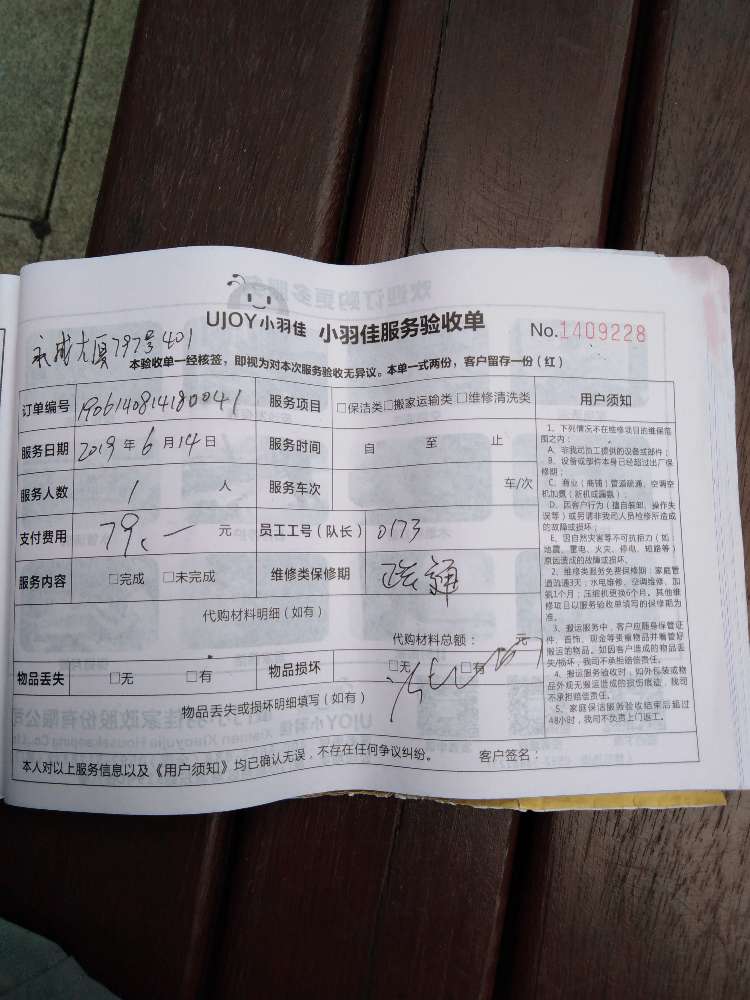 UJOY小羽佳 小羽佳服务验收单 No.1409228
永成大厦797号401
本验收单一经核签，即视为对本次服务验收无异议。本单一式两份，客户留存一份（红）
订单编号 1906140814180041 服务项目 □保洁类□搬家运输类 □维修清洗类 用户须知
服务日期 2019 年 6 月 14 日 服务时间 自 至 止
服务人数 1 人 服务车次 车/次
支付费用 79.— 元 员工工号（队长） 0173
服务内容 □完成 □未完成 维修类保修期 疏通
代购材料明细（如有）
代购材料总额： 元
物品丢失 □无 □有 物品损坏 □无 □有
物品丢失或损坏明细填写（如有）
本人对以上服务信息以及《用户须知》均已确认无误，不存在任何争议纠纷。 客户签名：
1、下列情况不在维修项目的维保范
围之内：
A、非我司员工提供的设备或部件；
B、设备或部件本身已经超过出厂保
修期；
C、商业（商铺）管道疏通、空调空
机加氨（新机或漏氨）；
D、因客户行为（擅自装卸、操作失
误等）或另请非我司人员检修所造成
的故障或损坏；
E、因自然灾害等不可抗拒力（如
地震、雷电、火灾、停电、短路等）
原因造成的故障或损坏。
2、维修类服务免费保修期：家庭管
道疏通3天；水电维修、空调维修、加
氨1个月；压缩机更换6个月。其他维
修项目以服务验收单填写的保修期为
准。
3、搬运服务中，客户应随身保管证
件、首饰、现金等贵重物品并看管好
搬运的物品。如因客户造成的物品丢
失/损坏，我司不承担赔偿责任。
4、搬运服务验收时，如外包装或物
品外观无搬运造成的损伤痕迹，我司
不承担赔偿责任。
5、家庭保洁服务验收结束后超过
48小时，我司不负责上门返工。